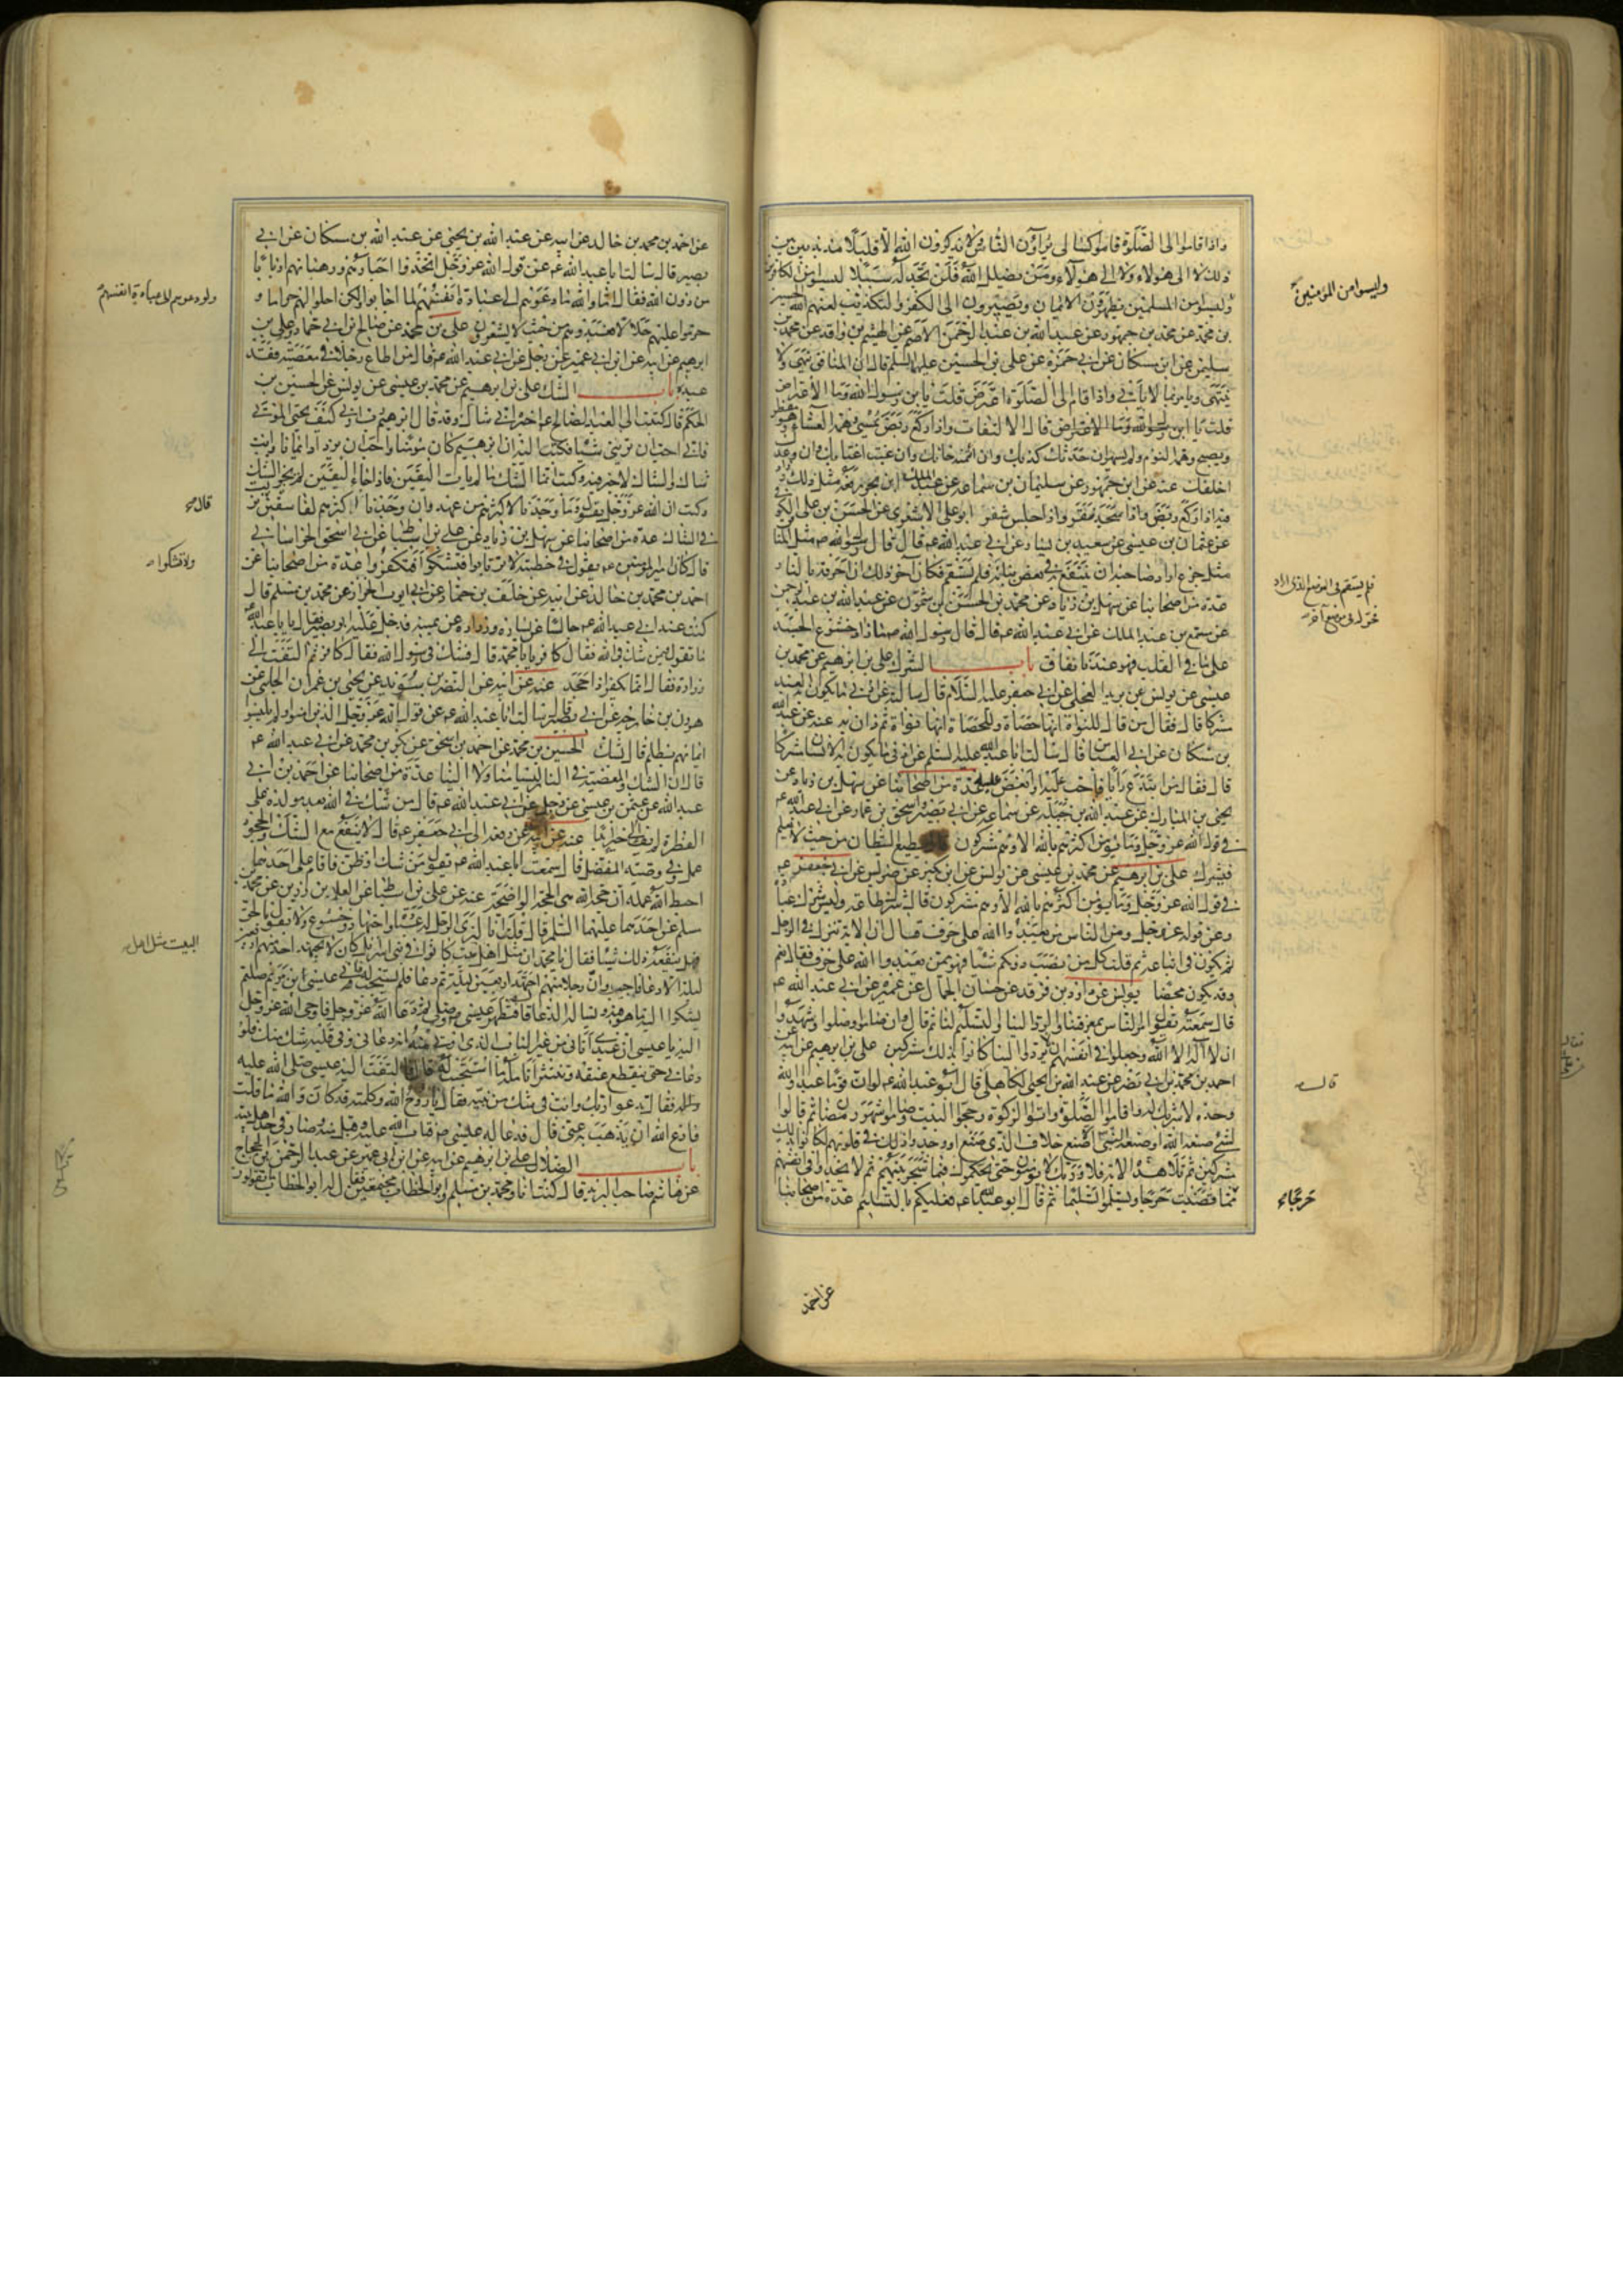 واذا قاموا الى الصلوة قاموا كسالى يرآؤن الناس ولا يذكرون الله الا قليلا مذبذبين بين
ذلك لا الى هؤلاء ولا الى هؤلآء ومن يضلل الله فلن تجد له سبيلا ليسوا من الكافرين
وليسوا من المسلمين يظهرون الايمان ويصيرون الى الكفر والتكذيب لعنهم الله الحسين
بن محمد عن محمد بن جمهور عن عبد الله بن عبد الرحمن الاصم عن الهيثم بن واقد عن محمد بن
سليمن عن ابن مسكان عن ابى حمزة عن على بن الحسين عليهما السلم قال ان المنافق ينهى ولا
ينتهى ويامر بما لا ياتى واذا قام الى الصلوة اعترض قلت يا بن رسول الله وما الاعتراض
قال الالتفات واذا ركع ربض يمسى وهمه العشاء وهو مفطر
ويصبح وهمه النوم ولم يسهر ان حدثك كذبك وان ائتمنته خانك وان غبت اغتابك وان وعدك
اخلفك عنه عن ابن جمهور عن سليمان بن سماعه عن عبد الملك ابن بحر رفعه مثل ذلك وزاد
فيه اذا ركع ربض واذا سجد نقر واذا جلس شغر ابو على الاشعرى عن الحسن بن على الكوفى
عن عثمان بن عيسى عن سعيد بن يسار عن ابى عبد الله عم قال قال رسول الله ص مثل المنافق
مثل جذع اراد صاحبه ان ينتفع به فى بعض بنائه فلم يستقم فكان آخر ذلك ان احرقه بالنار
عدة من اصحابنا عن سهل بن زياد عن محمد بن الحسن بن شمون عن عبد الله بن عبد الرحمن
عن مسمع بن عبد الملك عن ابى عبد الله عم قال قال رسول الله ص ما زاد خشوع الجسد
على ما فى القلب فهو عندنا نفاق باب الشرك على بن ابرهيم عن محمد بن
عيسى عن يونس عن بريد العجلى عن ابى جعفر عليه السلام قال سالته عن ادنى ما يكون العبد به
شركا قال فقال من قال للنواة انها حصاة وللحصاة انها نواة ثم دان به عنه عن عبد الله
بن مسكان عن ابى العباس قال سالت ابا عبد الله عليه السلم عن ادنى ما يكون به الانسان مشركا
قال فقال من ابتدع رايا فاحب عليه او ابغض عليه عدة من اصحابنا عن سهل بن زياد عن
يحيى بن المبارك عن عبد الله بن جبلة عن سماعة عن ابى بصير واسحق بن عمار عن ابى عبد الله عم
فى قول الله عز وجل وما يؤمن اكثرهم بالله الا وهم مشركون يطيع الشيطان من حيث لا يعلم
فيشرك على بن ابرهيم عن محمد بن عيسى عن يونس عن ابن بكير عن ضريس عن ابى جعفر عم
فى قول الله عز وجل وما يؤمن اكثرهم بالله الا وهم مشركون قال شرك طاعة وليس شرك عبادة
وعن قوله عز وجل ومن الناس من يعبد الله على حرف قال ان الاية تنزل فى الرجل
ثم تكون فى اتباعه ثم قلت كل من نصب دونكم شيئا فهو ممن يعبد الله على حرف فقال نعم
وقد يكون محضا يونس عن داود بن فرقد عن حسان الجمال عن عميرة عن ابى عبد الله عم
قال سمعته يقول امر الناس بمعرفتنا والرد الينا والتسليم لنا ثم قال وان صاموا وصلوا وشهدوا
ان لا اله الا الله وجعلوا فى انفسهم ان لا يردوا الينا كانوا بذلك مشركين على بن ابرهيم عن ابيه عن
احمد بن محمد بن ابى نصر عن عبد الله بن يحيى الكاهلى قال قال ابو عبد الله عم لو ان قوما عبدوا الله
وحده لا شريك له واقاموا الصلوة واتوا الزكوة وحجوا البيت وصاموا شهر رمضان ثم قالوا
لشىء صنعه الله او صنعه النبى الا صنع خلاف الذى صنع او وجدوا ذلك فى قلوبهم لكانوا بذلك
مشركين ثم تلا هذه الاية فلا وربك لا يؤمنون حتى يحكموك فيما شجر بينهم ثم لا يجدوا فى انفسهم
مما قضيت حرجا ويسلموا تسليما ثم قال ابو عبد الله عم فعليكم بالتسليم عدة من اصحابنا
وليسوا من المؤمنين
فلم يستقم فى الموضع الذى اراد
فحوله فى موضع آخر
قال
حرجا
عن احمد
عن احمد بن محمد بن خالد عن ابيه عن عبد الله بن يحيى عن عبد الله بن مسكان عن ابى
بصير قال سالت ابا عبد الله عم عن قول الله عز وجل اتخذوا احبارهم ورهبانهم اربابا
من دون الله فقال اما والله ما دعوهم الى عبادة انفسهم لما اجابوا ولكن احلوا لهم حراما و
حرموا عليهم حلالا فعبدوهم من حيث لا يشعرون على بن محمد عن صالح بن ابى حماد وعلى بن
ابرهيم عن ابيه عن ابن ابى عمير عن رجل عن ابى عبد الله عم قال من اطاع رجلا فى معصية فقد
عبده باب الشك على بن ابرهيم عن محمد بن عيسى عن يونس عن الحسين بن
الحكم قال كتبت الى العبد الصالح عم اخبره انى شاك وقد قال ابرهيم رب ارنى كيف تحيى الموتى
فانى احب ان ترينى شيئا فكتب اليه ان ابرهيم كان مؤمنا واحب ان يزداد ايمانا وانت
شاك والشاك لا خير فيه وكتب انما الشك ما لم يات اليقين فاذا جاء اليقين لم يجز الشك
وكتب ان الله عز وجل يقول وما وجدنا لاكثرهم من عهد وان وجدنا اكثرهم لفاسقين نزلت
فى الشاك عدة من اصحابنا عن سهل بن زياد عن على بن اسباط عن ابى اسحق الخراسانى
قال كان امير المومنين عم يقول فى خطبته لا ترتابوا فتشكوا فتكفروا عدة من اصحابنا عن
احمد بن محمد بن خالد عن ابيه عن خلف بن حماد عن ابى ايوب الخزاز عن محمد بن مسلم قال
كنت عند ابى عبد الله عم جالسا عن يساره وزرارة عن يمينه فدخل عليه ابو بصير فقال يا با عبد الله
ما تقول فيمن شك فى الله فقال كافر يا با محمد قال فشك فى رسول الله فقال كافر ثم التفت الى
زرارة فقال انما يكفر اذا جحد عنه عن ابيه عن النضر بن سويد عن يحيى بن عمران الحلبى عن
هرون بن خارجة عن ابى بصير قال سالت ابا عبد الله عم عن قول الله عز وجل الذين امنوا ولم يلبسوا
ايمانهم بظلم قال بشك الحسين بن محمد عن احمد بن اسحق عن بكر بن محمد عن ابى عبد الله عم
قال ان الشك والمعصية فى النار ليسا منا ولا الينا عدة من اصحابنا عن احمد بن ابى
عبد الله عن عثمن بن عيسى عن رجل عن ابى عبد الله عم قال من شك فى الله بعد مولده على
الفطرة لم يفئ الى خير ابدا عنه عن ابيه رفعه الى ابى جعفر عم قال لا ينفع مع الشك والجحود
عمل وفى وصية المفضل قال سمعت ابا عبد الله عم يقول من شك او ظن فاقام على احدهما
احبط الله عمله ان حجة الله هى الحجة الواضحة عنه عن على بن اسباط عن العلاء بن رزين عن محمد بن
مسلم عن احدهما عليهما السلم قال قلت انا لنرى الرجل له عبادة واجتهاد وخشوع ولا يقول بالحق
فهل ينفعه ذلك شيئا فقال يا محمد ان مثل اهل البيت كانوا فى بنى اسرائيل كان لا يجتهد احد منهم اربعين
ليلة الا دعا فاجيب وان رجلا منهم اجتهد اربعين ليلة ثم دعا فلم يستجب له فاتى عيسى ابن مريم صلعم
يشكوا اليه ما هو فيه ويساله الدعا قال فتطهر عيسى وصلى ثم دعا الله عز وجل فاوحى الله عز وجل
اليه يا عيسى ان عبدى اتانى من غير الباب الذى اوتى منه انه دعانى وفى قلبه شك منك فلو
دعانى حتى ينقطع عنقه وتنتثر انامله ما استجبت له قال فالتفت اليه عيسى صلى الله عليه
فقال تدعو ربك وانت فى شك من نبيه فقال يا روح الله وكلمته قد كان والله ما قلت
فادع الله ان يذهب به عنى قال فدعا له عيسى ص فتاب الله عليه وقبل منه وصار فى حد اهل بيته
باب الضلال على بن ابرهيم عن ابيه عن ابن ابى عمير عن عبد الرحمن بن الحجاج
عن هاشم صاحب البريد قال كنت انا ومحمد بن مسلم وابو الخطاب مجتمعين فقال لنا ابو الخطاب ما تقولون
ولو دعوهم الى عبادة انفسهم
قال
ولا تشكوا
البيت مثل اهل